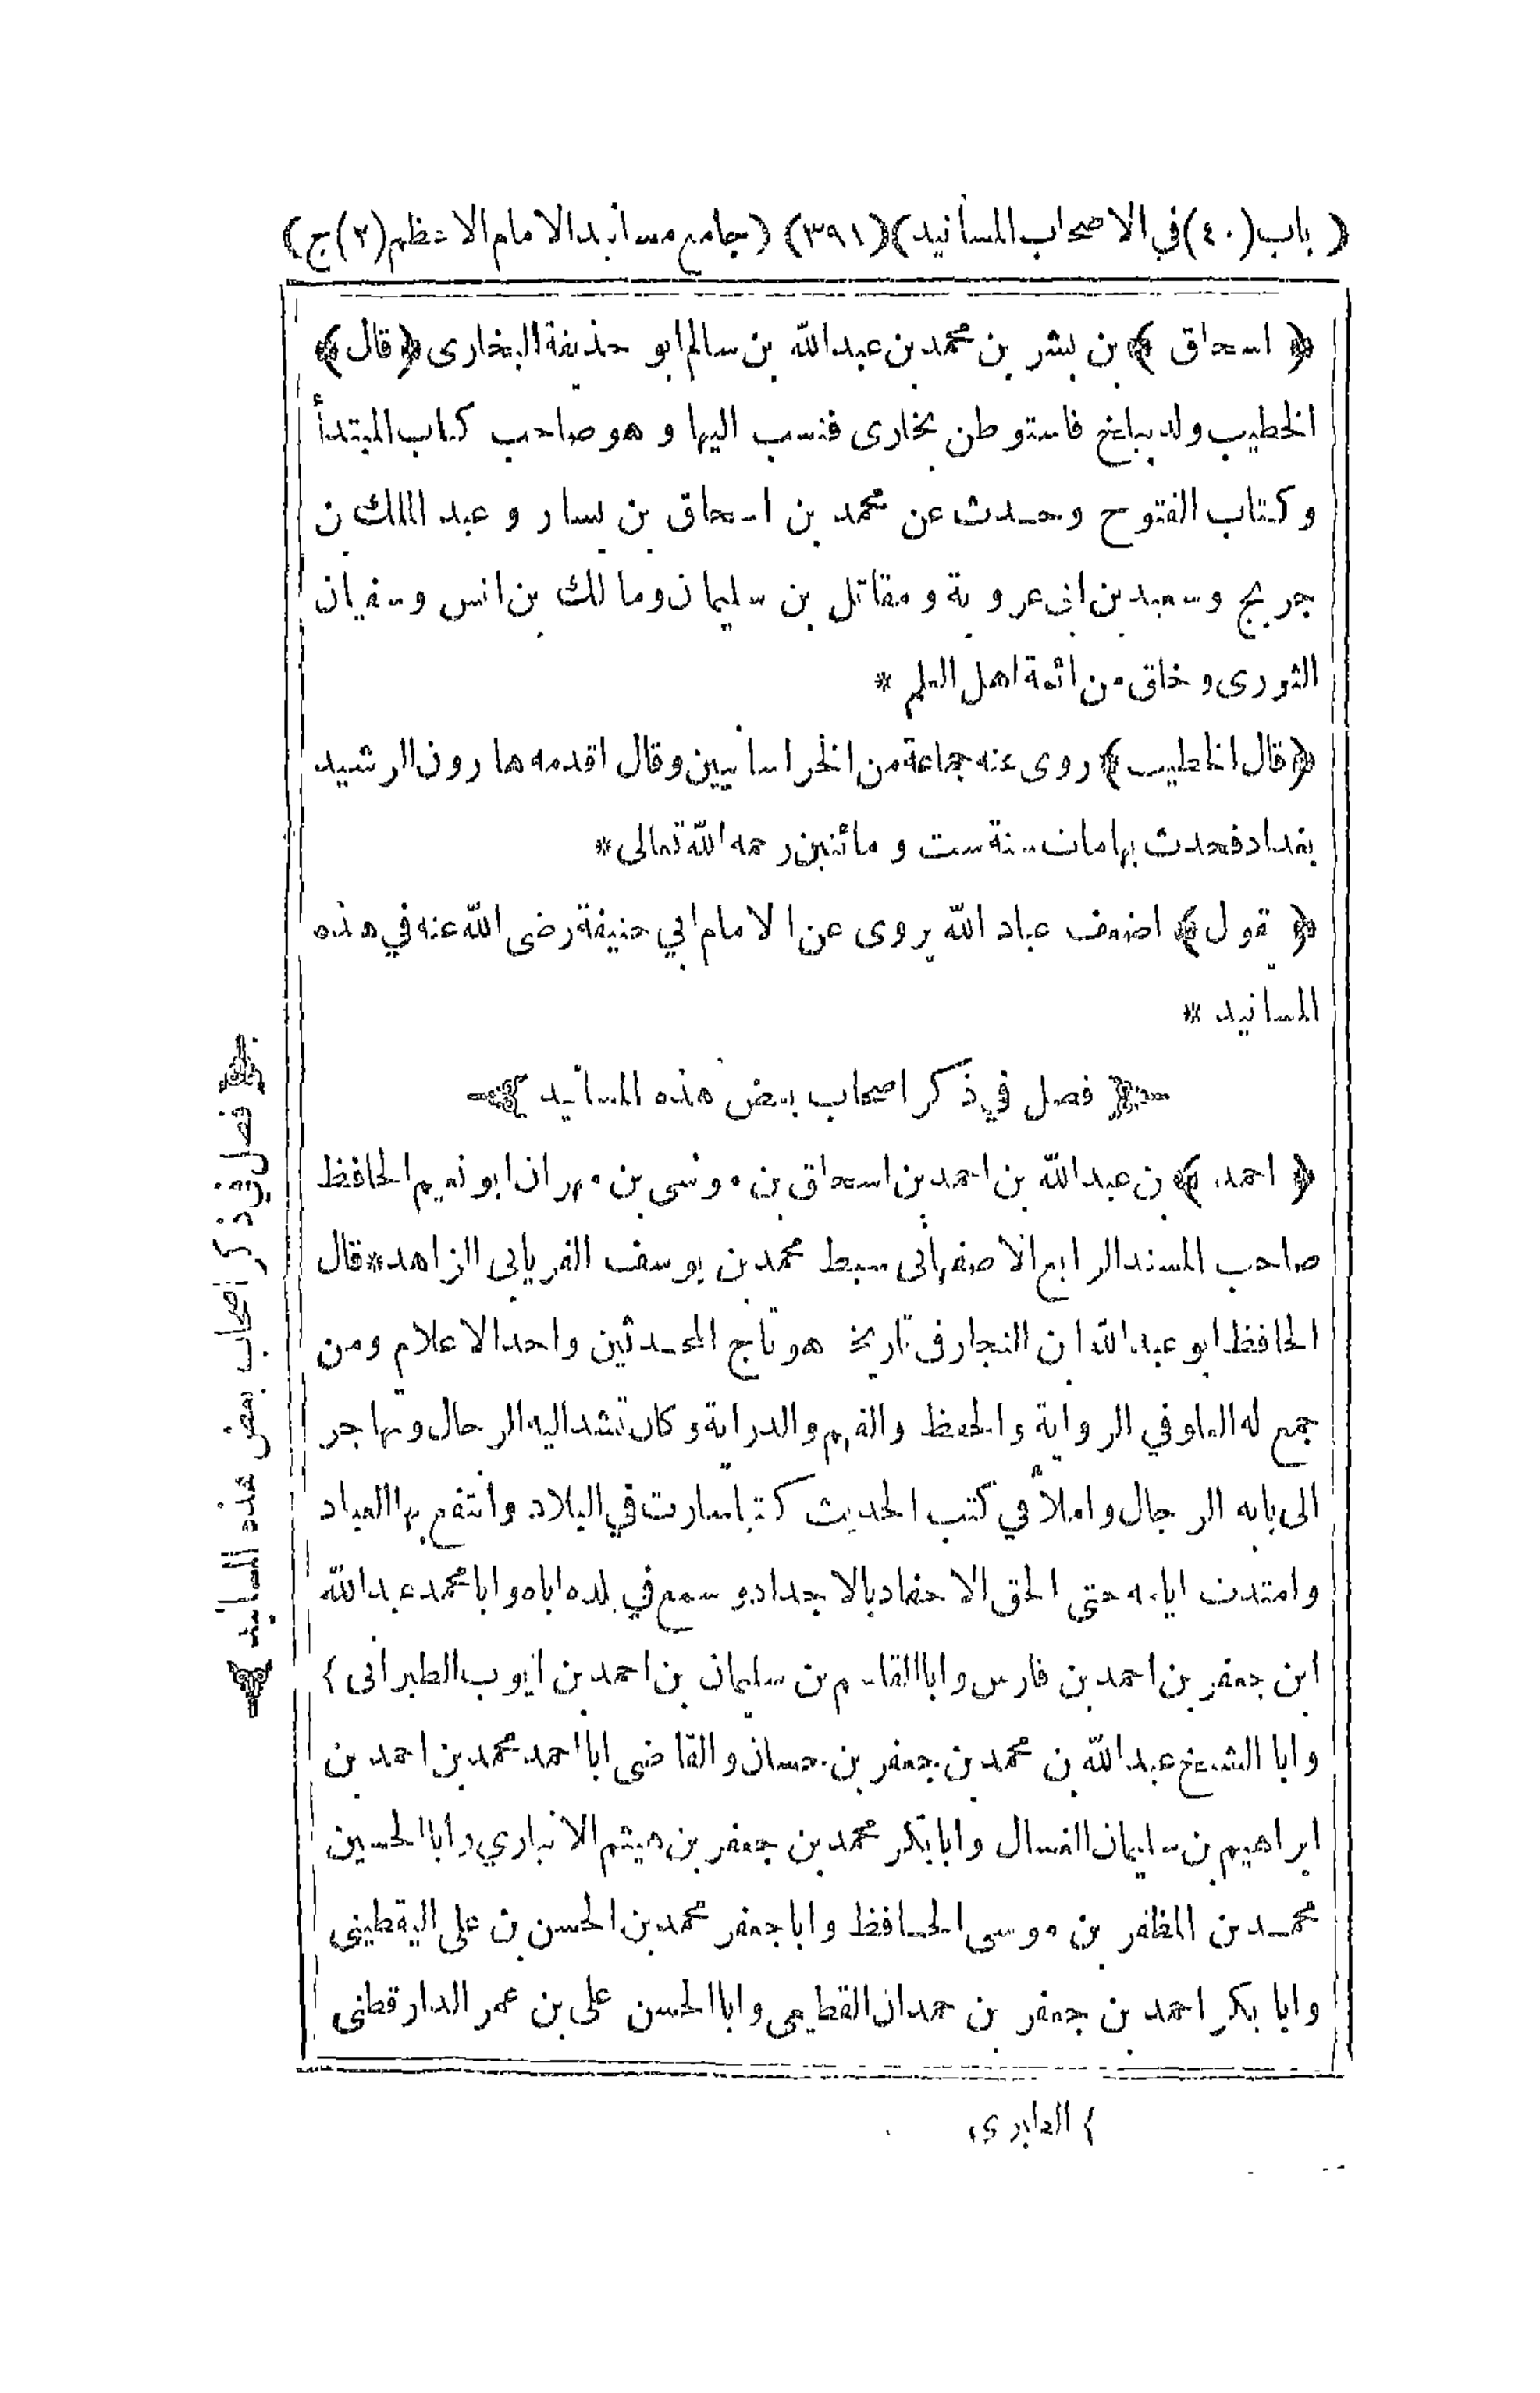 ( باب (٤٠) في الاصحاب المسانيد ) (٣٩١) ( جامع مسانيد الامام الاعظم (٢) ج )
﴿ اسحاق ﴾ بن بشر بن محمد بن عبدالله بن سالم ابو حذيفة البخارى ﴿ قال ﴾
الخطيب ولد ببلخ فاستوطن بخارى فنسب اليها و هو صاحب كتاب المبتدأ
و كتاب الفتوح وحدث عن محمد بن اسحاق بن يسار و عبد الملك بن
جريج وسعيد بن ابى عروبة و مقاتل بن سليمان ومالك بن انس وسفيان
الثورى و خلق من ائمة اهل العلم *
﴿ قال الخطيب ﴾ روى عنه جماعة من الخراسانيين وقال اقدمه هارون الرشيد
بغداد فحدث بها مات سنة ست و مائتين رحمه الله تعالى *
﴿ يقول ﴾ اضعف عباد الله يروى عن الامام ابي حنيفة رضى الله عنه في هذه
المسانيد *
فصل في ذكر اصحاب بعض هذه المسانيد
﴿ احمد ﴾ بن عبدالله بن احمد بن اسحاق بن موسى بن مهران ابو نعيم الحافظ
صاحب المسند الرابع الاصفهانى سبط محمد بن يوسف الفريابى الزاهد * قال
الحافظ ابو عبدالله ابن النجار فى تاريخه هو تاج المحدثين واحد الاعلام ومن
جمع له العلو في الرواية والحفظ والفهم والدراية وكان تشد اليه الرحال وتهاجر
الى بابه الرجال واملأ في كتب الحديث كتبا سارت في البلاد وانتفع بها العباد
وامتدت ايامه حتى الحق الاحفاد بالاجداد و سمع في بلده اباه وابا محمد عبدالله
ابن جعفر بن احمد بن فارس وابا القاسم بن سليمان بن احمد بن ايوب الطبرانى }
وابا الشيخ عبدالله بن محمد بن جعفر بن حسان والقاضى ابا احمد محمد بن احمد بن
ابراهيم بن سليمان الغسال وابا بكر محمد بن جعفر بن هيثم الانباري وابا الحسين
محمد بن المظفر بن موسى الحافظ وابا جعفر محمد بن الحسن بن على اليقطينى
وابا بكر احمد بن جعفر بن حمدان القطيعى وابا الحسن على بن عمر الدارقطنى
} الطبرى
فصل في ذكر اصحاب بعض هذه المسانيد